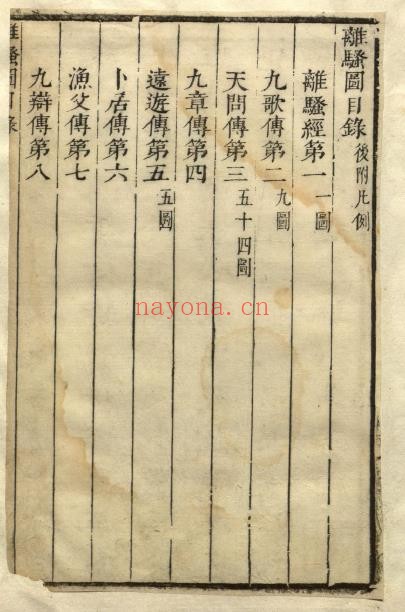 離騷圖目錄後附凡例
離騷經第一一圖
九歌傳第二九圖
天問傳第三五十四圖
九章傳第四
遠遊傳第五五圖
卜居傳第六
漁父傳第七
九辯傳第八
離騷圖目錄
nayona.cn